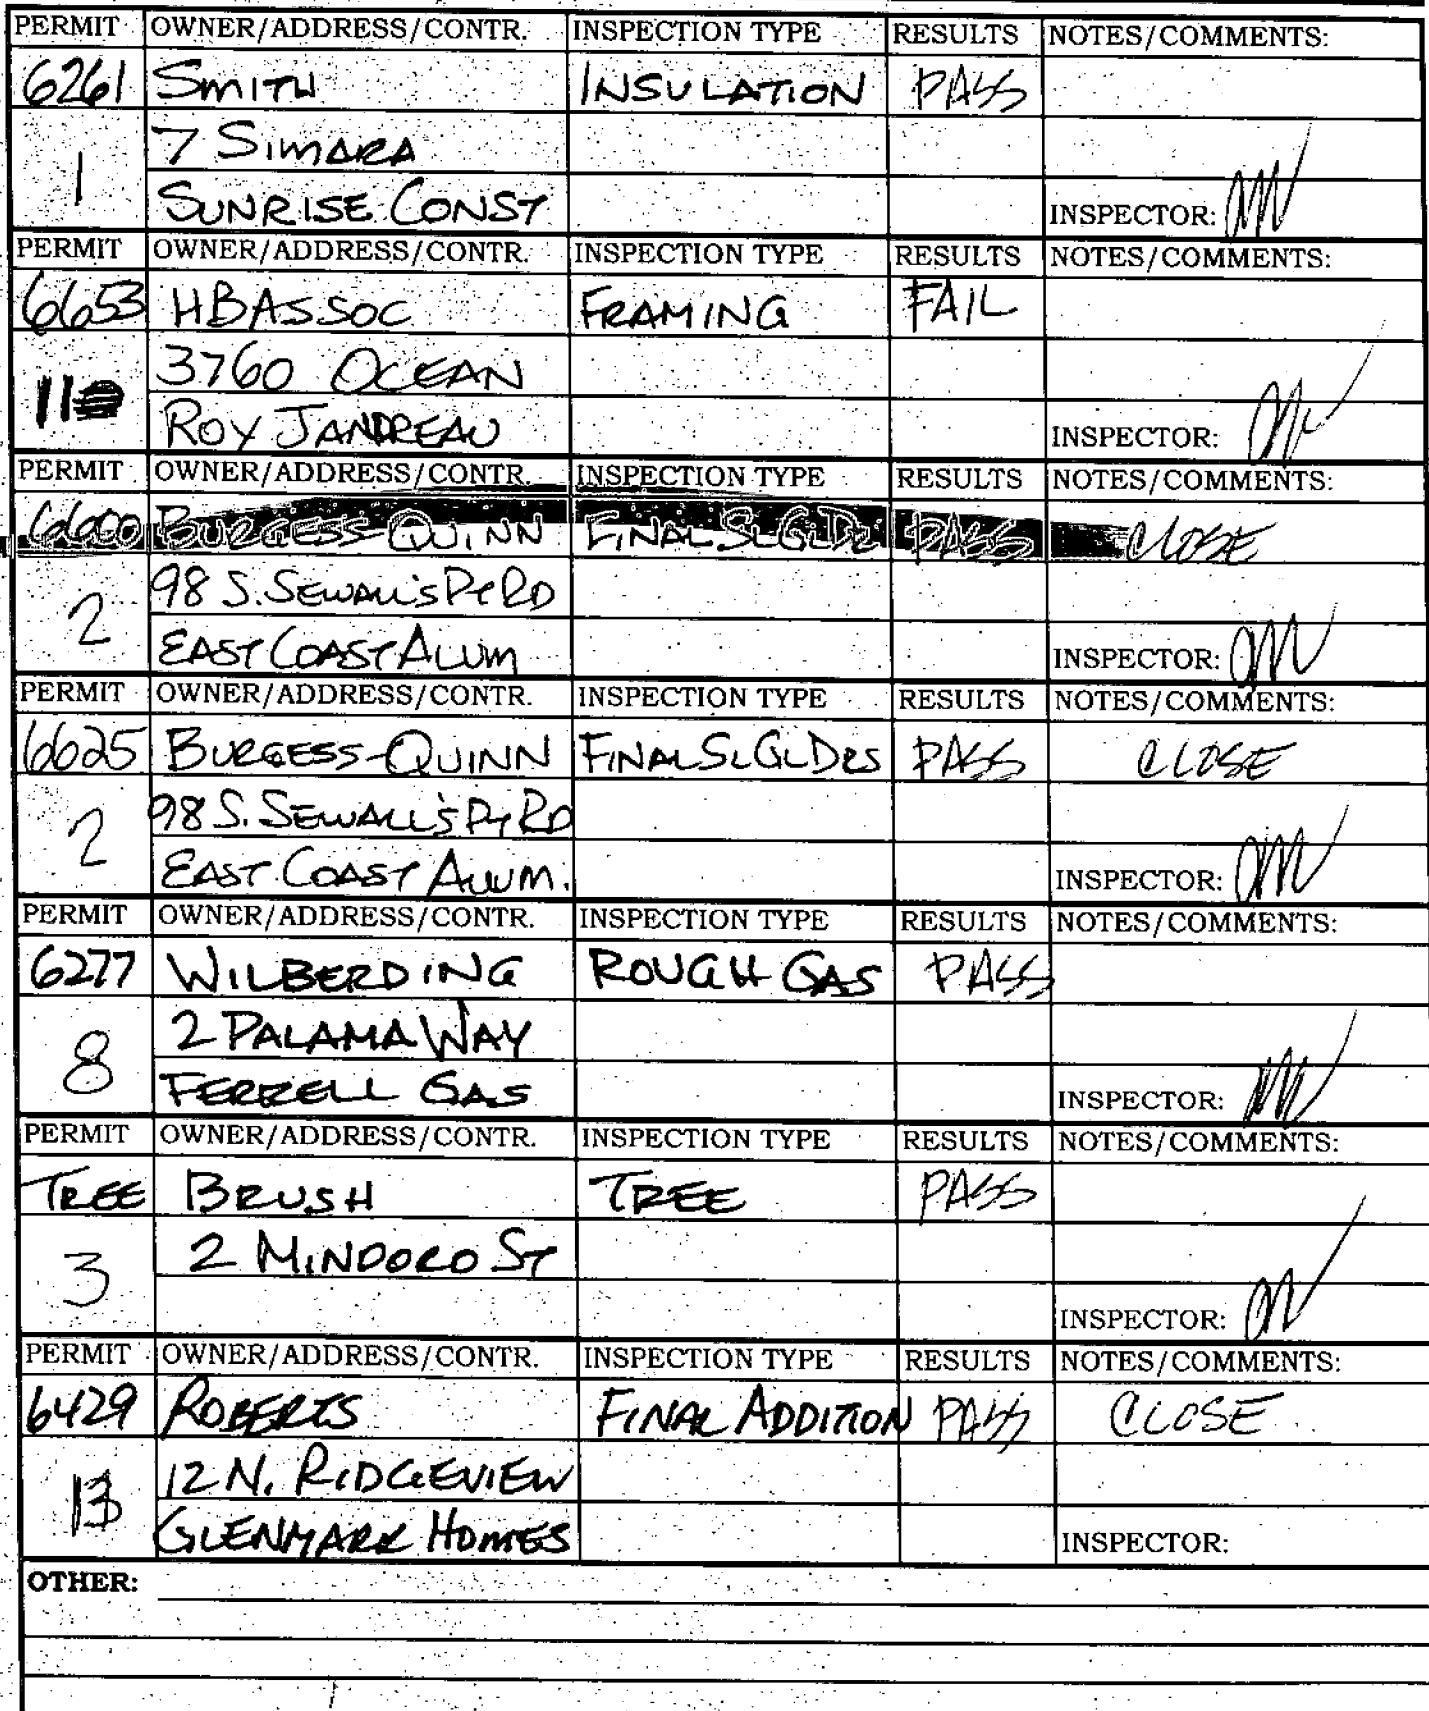 PERMIT OWNER/ADDRESS/CONTR. INSPECTION TYPE RESULTS NOTES/COMMENTS:
6261 SMITH INSULATION PASS
7 SIMARA
1
SUNRISE CONST INSPECTOR:
PERMIT OWNER/ADDRESS/CONTR. INSPECTION TYPE RESULTS NOTES/COMMENTS:
6653 HBASSOC FRAMING FAIL
3760 OCEAN
11
ROY JANDREAU INSPECTOR:
PERMIT OWNER/ADDRESS/CONTR. INSPECTION TYPE RESULTS NOTES/COMMENTS:
BURGESS-QUINN FINAL SLGLDR PASS CLOSE
98 S. SEWALL'S PT RD
2
EAST COAST ALUM INSPECTOR:
PERMIT OWNER/ADDRESS/CONTR. INSPECTION TYPE RESULTS NOTES/COMMENTS:
6625 BURGESS-QUINN FINAL SLGLDRS PASS CLOSE
98 S. SEWALL'S PT RD
2
EAST COAST ALUM. INSPECTOR:
PERMIT OWNER/ADDRESS/CONTR. INSPECTION TYPE RESULTS NOTES/COMMENTS:
6277 WILBERDING ROUGH GAS PASS
2 PALAMA WAY
8
FERRELL GAS INSPECTOR:
PERMIT OWNER/ADDRESS/CONTR. INSPECTION TYPE RESULTS NOTES/COMMENTS:
TREE BRUSH TREE PASS
2 MINDORO ST
3
INSPECTOR:
PERMIT OWNER/ADDRESS/CONTR. INSPECTION TYPE RESULTS NOTES/COMMENTS:
6429 ROBERTS FINAL ADDITION PASS CLOSE
12 N. RIDGEVIEW
13
GLENMARK HOMES INSPECTOR:
OTHER: